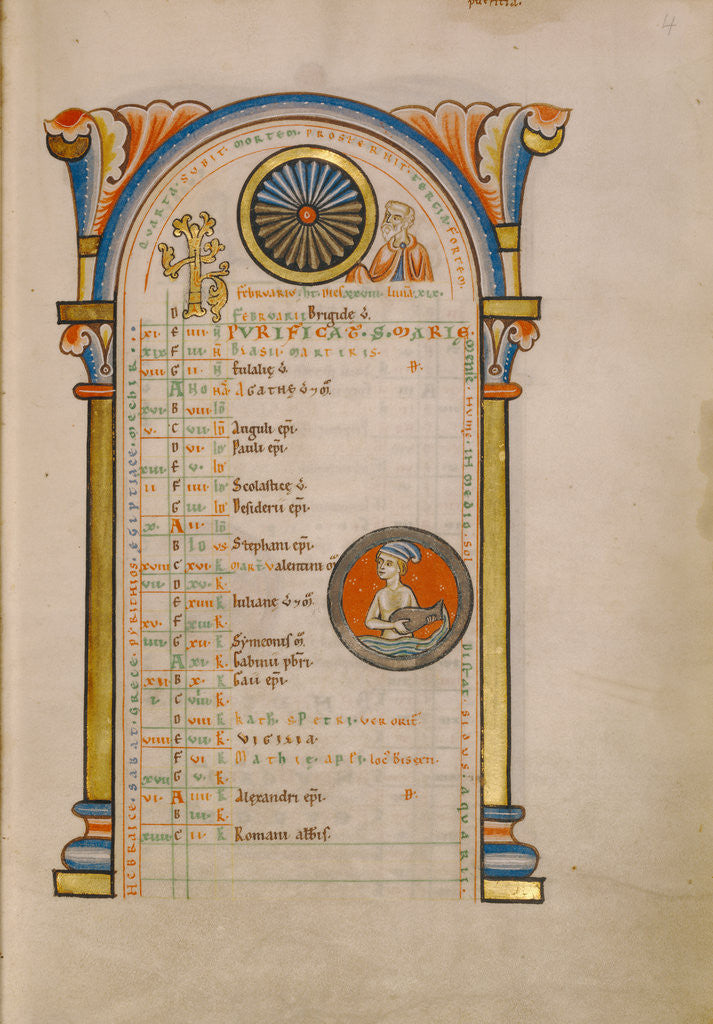 4
QUARTA SUBIT MORTEM PROSTERNIT TERTIA FORTEM
KL
FEBRUARIUS ht DIES XXVIII LUNA XXIX
D FEBRUARII Brigide v̄.
XI E IIII N PURIFICAT̄ S MARIE
XIX F III N BLASII MARTIRIS
VIII G II N Eulalie v̄.
A NO NA AGATHE v̄ 7 m̄.
XVI B VIII ID
V C VII ID Anguli ep̄i.
D VI ID Pauli ep̄i.
XIII E V ID
II F IIII ID Scolastice v̄.
G III ID Desiderii ep̄i.
X A II ID
B ID US Stephani ep̄i.
XVIII C XVI K MART̄ Valentini m̄
VII D XV K
E XIIII K Iuliane v̄ 7 m̄.
XV F XIII K
IIII G XII K Symeonis m̄.
A XI K Gabinii pb̄ri.
XII B X K Gaii ep̄i.
I C VIIII K
D VIII K Kath S PETRI
VIIII E VII K VIGILIA
F VI K Mathie apl̄i loc bisexti
XVII G V K
VI A IIII K Alexandri ep̄i.
B III K
XIIII C II K Romani abb̄is.
HEBRAICE SABAT GRECE PYRITHIOS EGIPTIACE MECHIR
MENSE NUME IN MEDIO SOL DISTAT SIDUS AQUARII